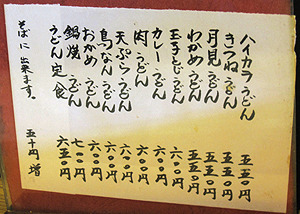 ハイカラうどん 五五〇円
きつねうどん 五五〇円
月見うどん 五五〇円
わかめうどん 五五〇円
玉子とじうどん 六〇〇円
カレーうどん 六〇〇円
肉うどん 六〇〇円
天ぷらうどん 六〇〇円
鳥なんうどん 六〇〇円
おかめうどん 六〇〇円
鍋焼うどん 七〇〇円
うどん定食 六五〇円
そばに出来ます。 五十円増